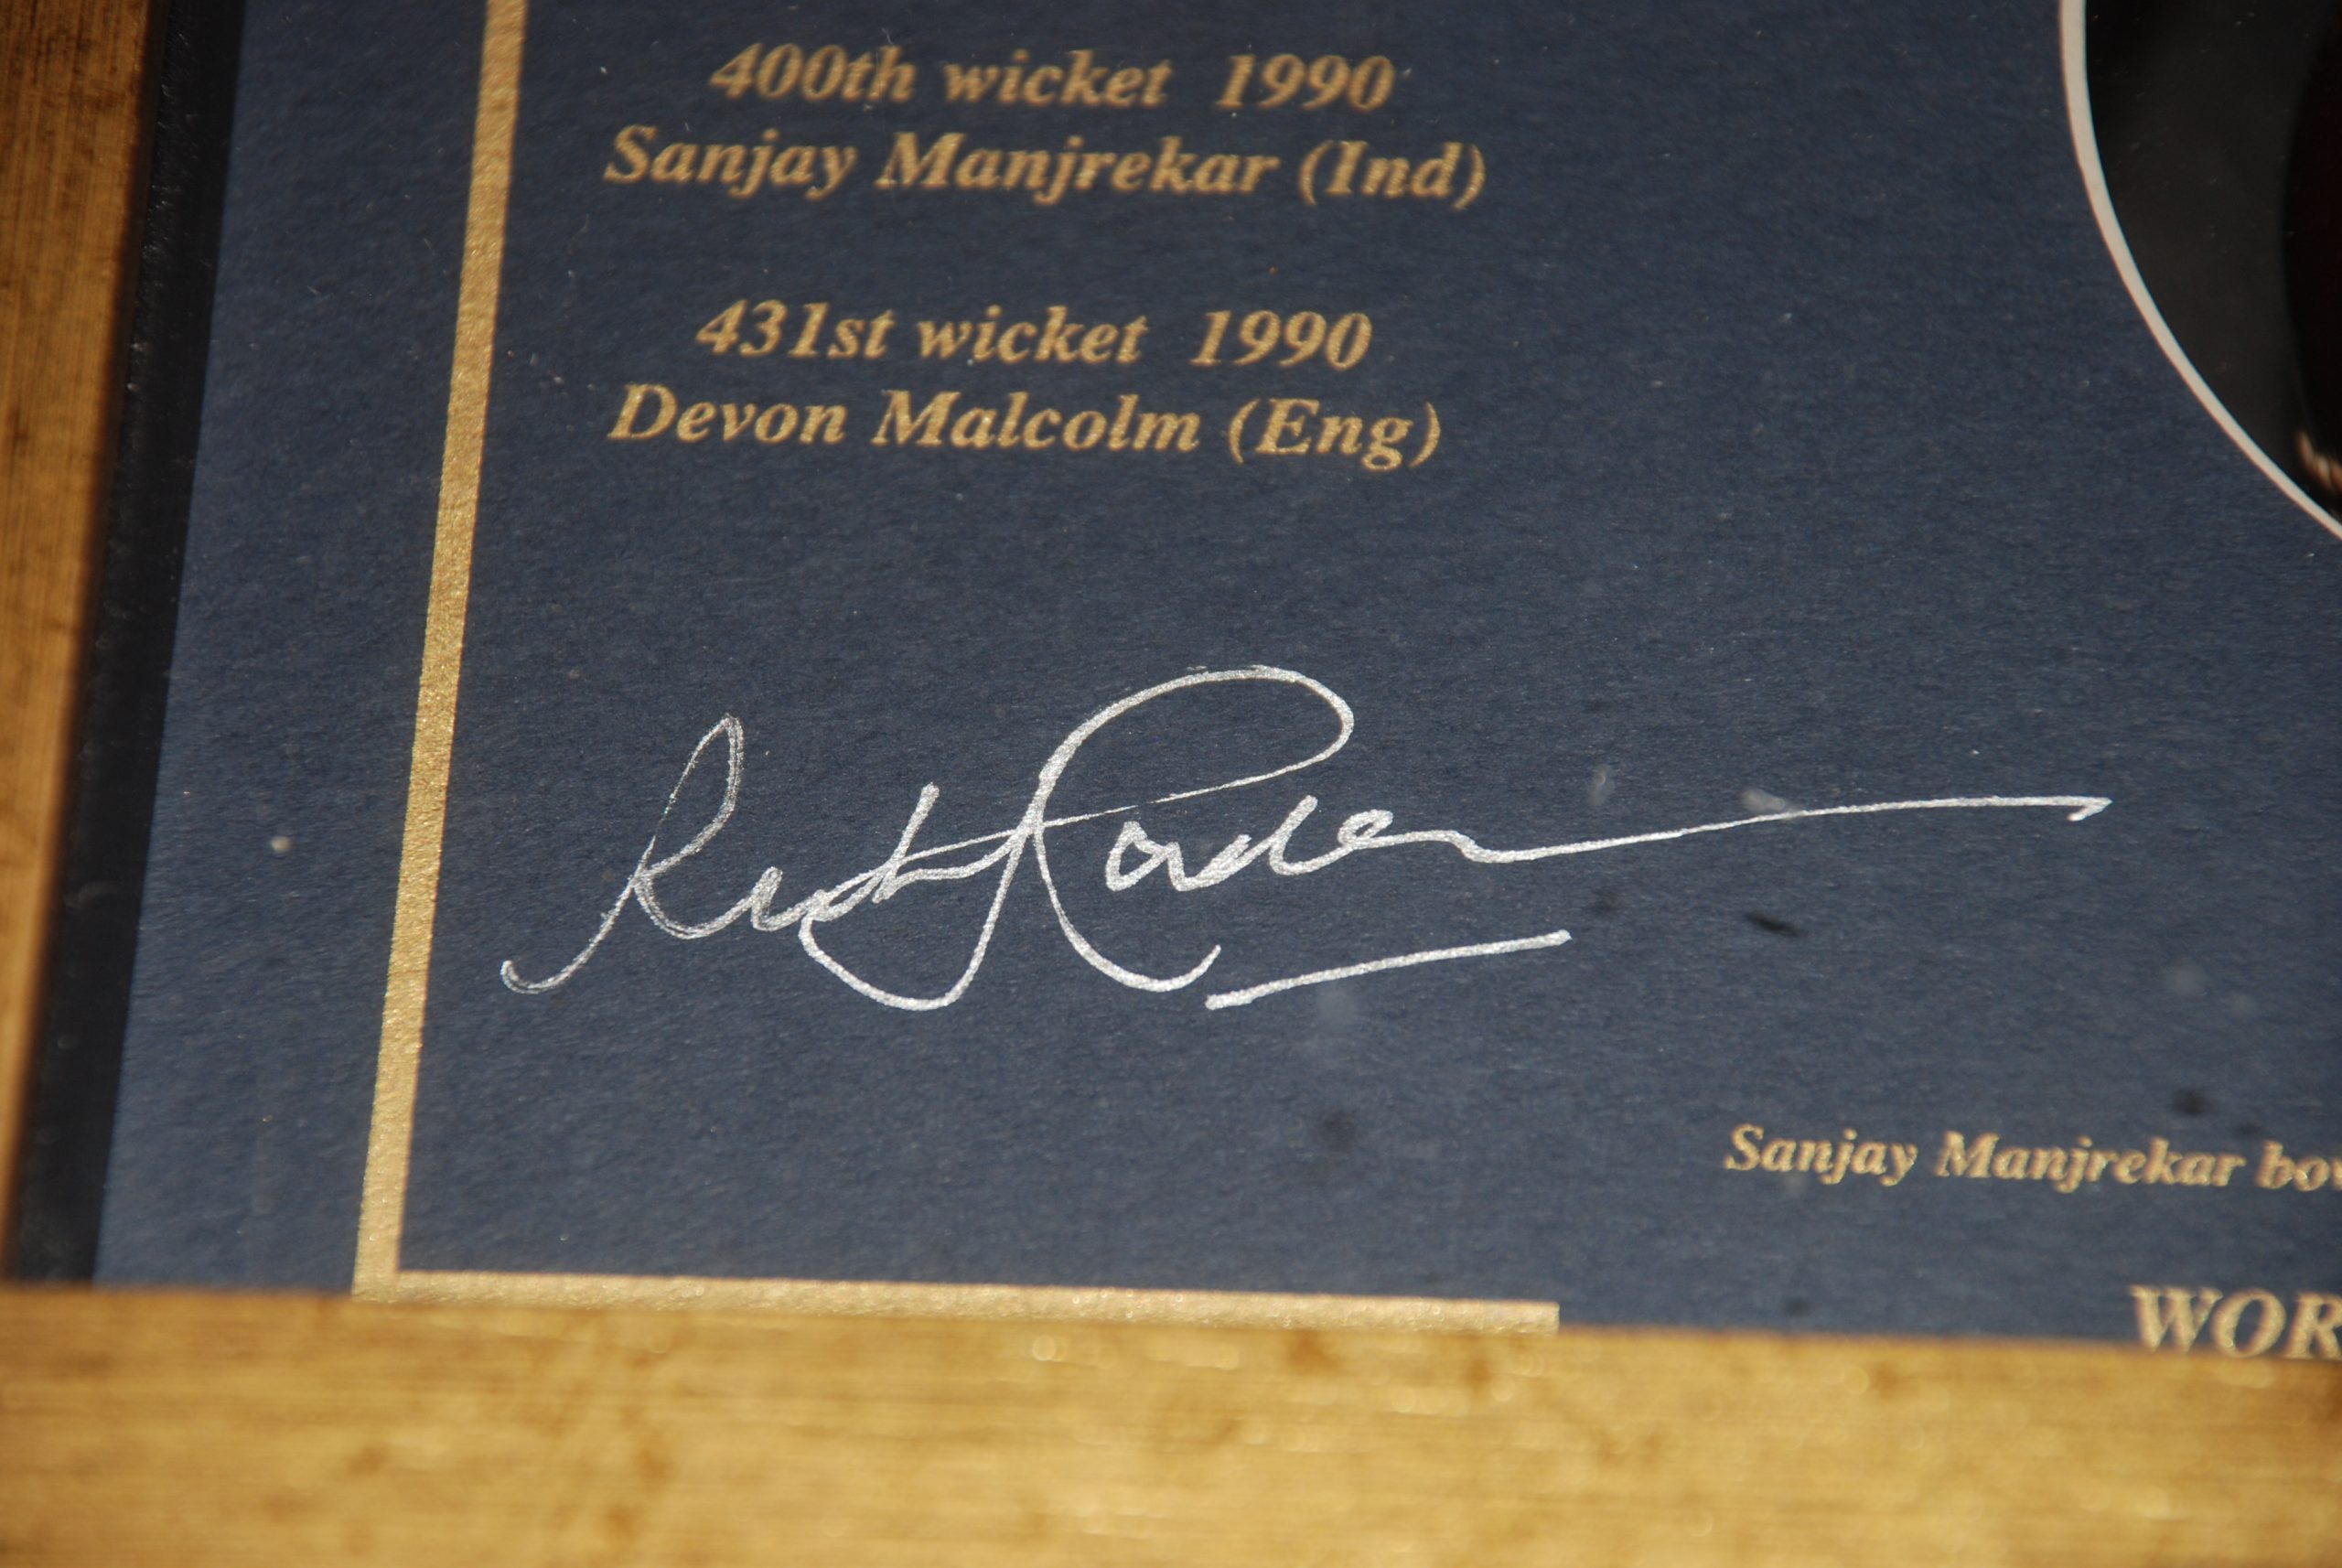 400th wicket 1990
Sanjay Manjrekar (Ind)
431st wicket 1990
Devon Malcolm (Eng)
Sanjay Manjrekar bow
WOR